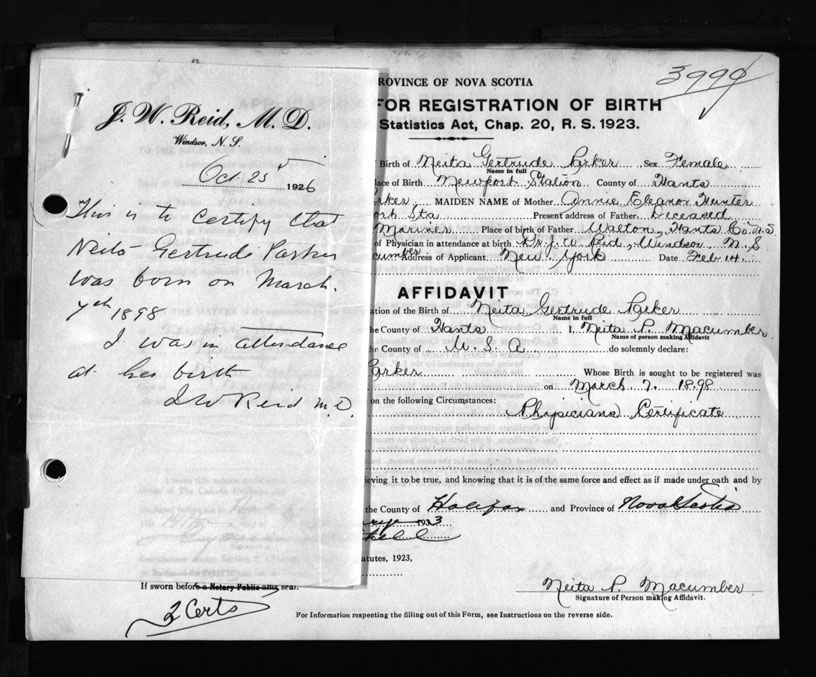 J. W. Reid, M. D.
Windsor, N. S.
Oct 25 1926
This is to certify that
Neita Gertrude Parker
was born on March
7th 1898
I was in attendance
at her birth
J W Reid M.D.
3990
PROVINCE OF NOVA SCOTIA
FOR REGISTRATION OF BIRTH
Statistics Act, Chap. 20, R. S. 1923.
Birth of Neita Gertrude Parker Sex Female
Name in full
Place of Birth Newport Station County of Hants
Parker MAIDEN NAME of Mother Annie Eleanor Hunter
Sta Present address of Father Deceased
Mariner Place of birth of Father Walton, Hants Co. N.S
of Physician in attendance at birth Dr. J. W. Reid, Windsor N. S
Macumber Address of Applicant New York Date Feb 14.
AFFIDAVIT
ation of the Birth of Neita Gertrude Parker
Name in full
the County of Hants I, Neita P. Macumber
Name of person making Affidavit
the County of U. S. A do solemnly declare:
Parker Whose Birth is sought to be registered was
on March 7. 1898
on the following Circumstances:
Physicians Certificate
ieving it to be true, and knowing that it is of the same force and effect as if made under oath and by
the County of Halifax and Province of Nova Scotia
1933
tatutes, 1923,
If sworn before a Notary Public any seal.
Neita P. Macumber
Signature of Person making Affidavit.
2 Certs
For Information respecting the filling out of this Form, see Instructions on the reverse side.